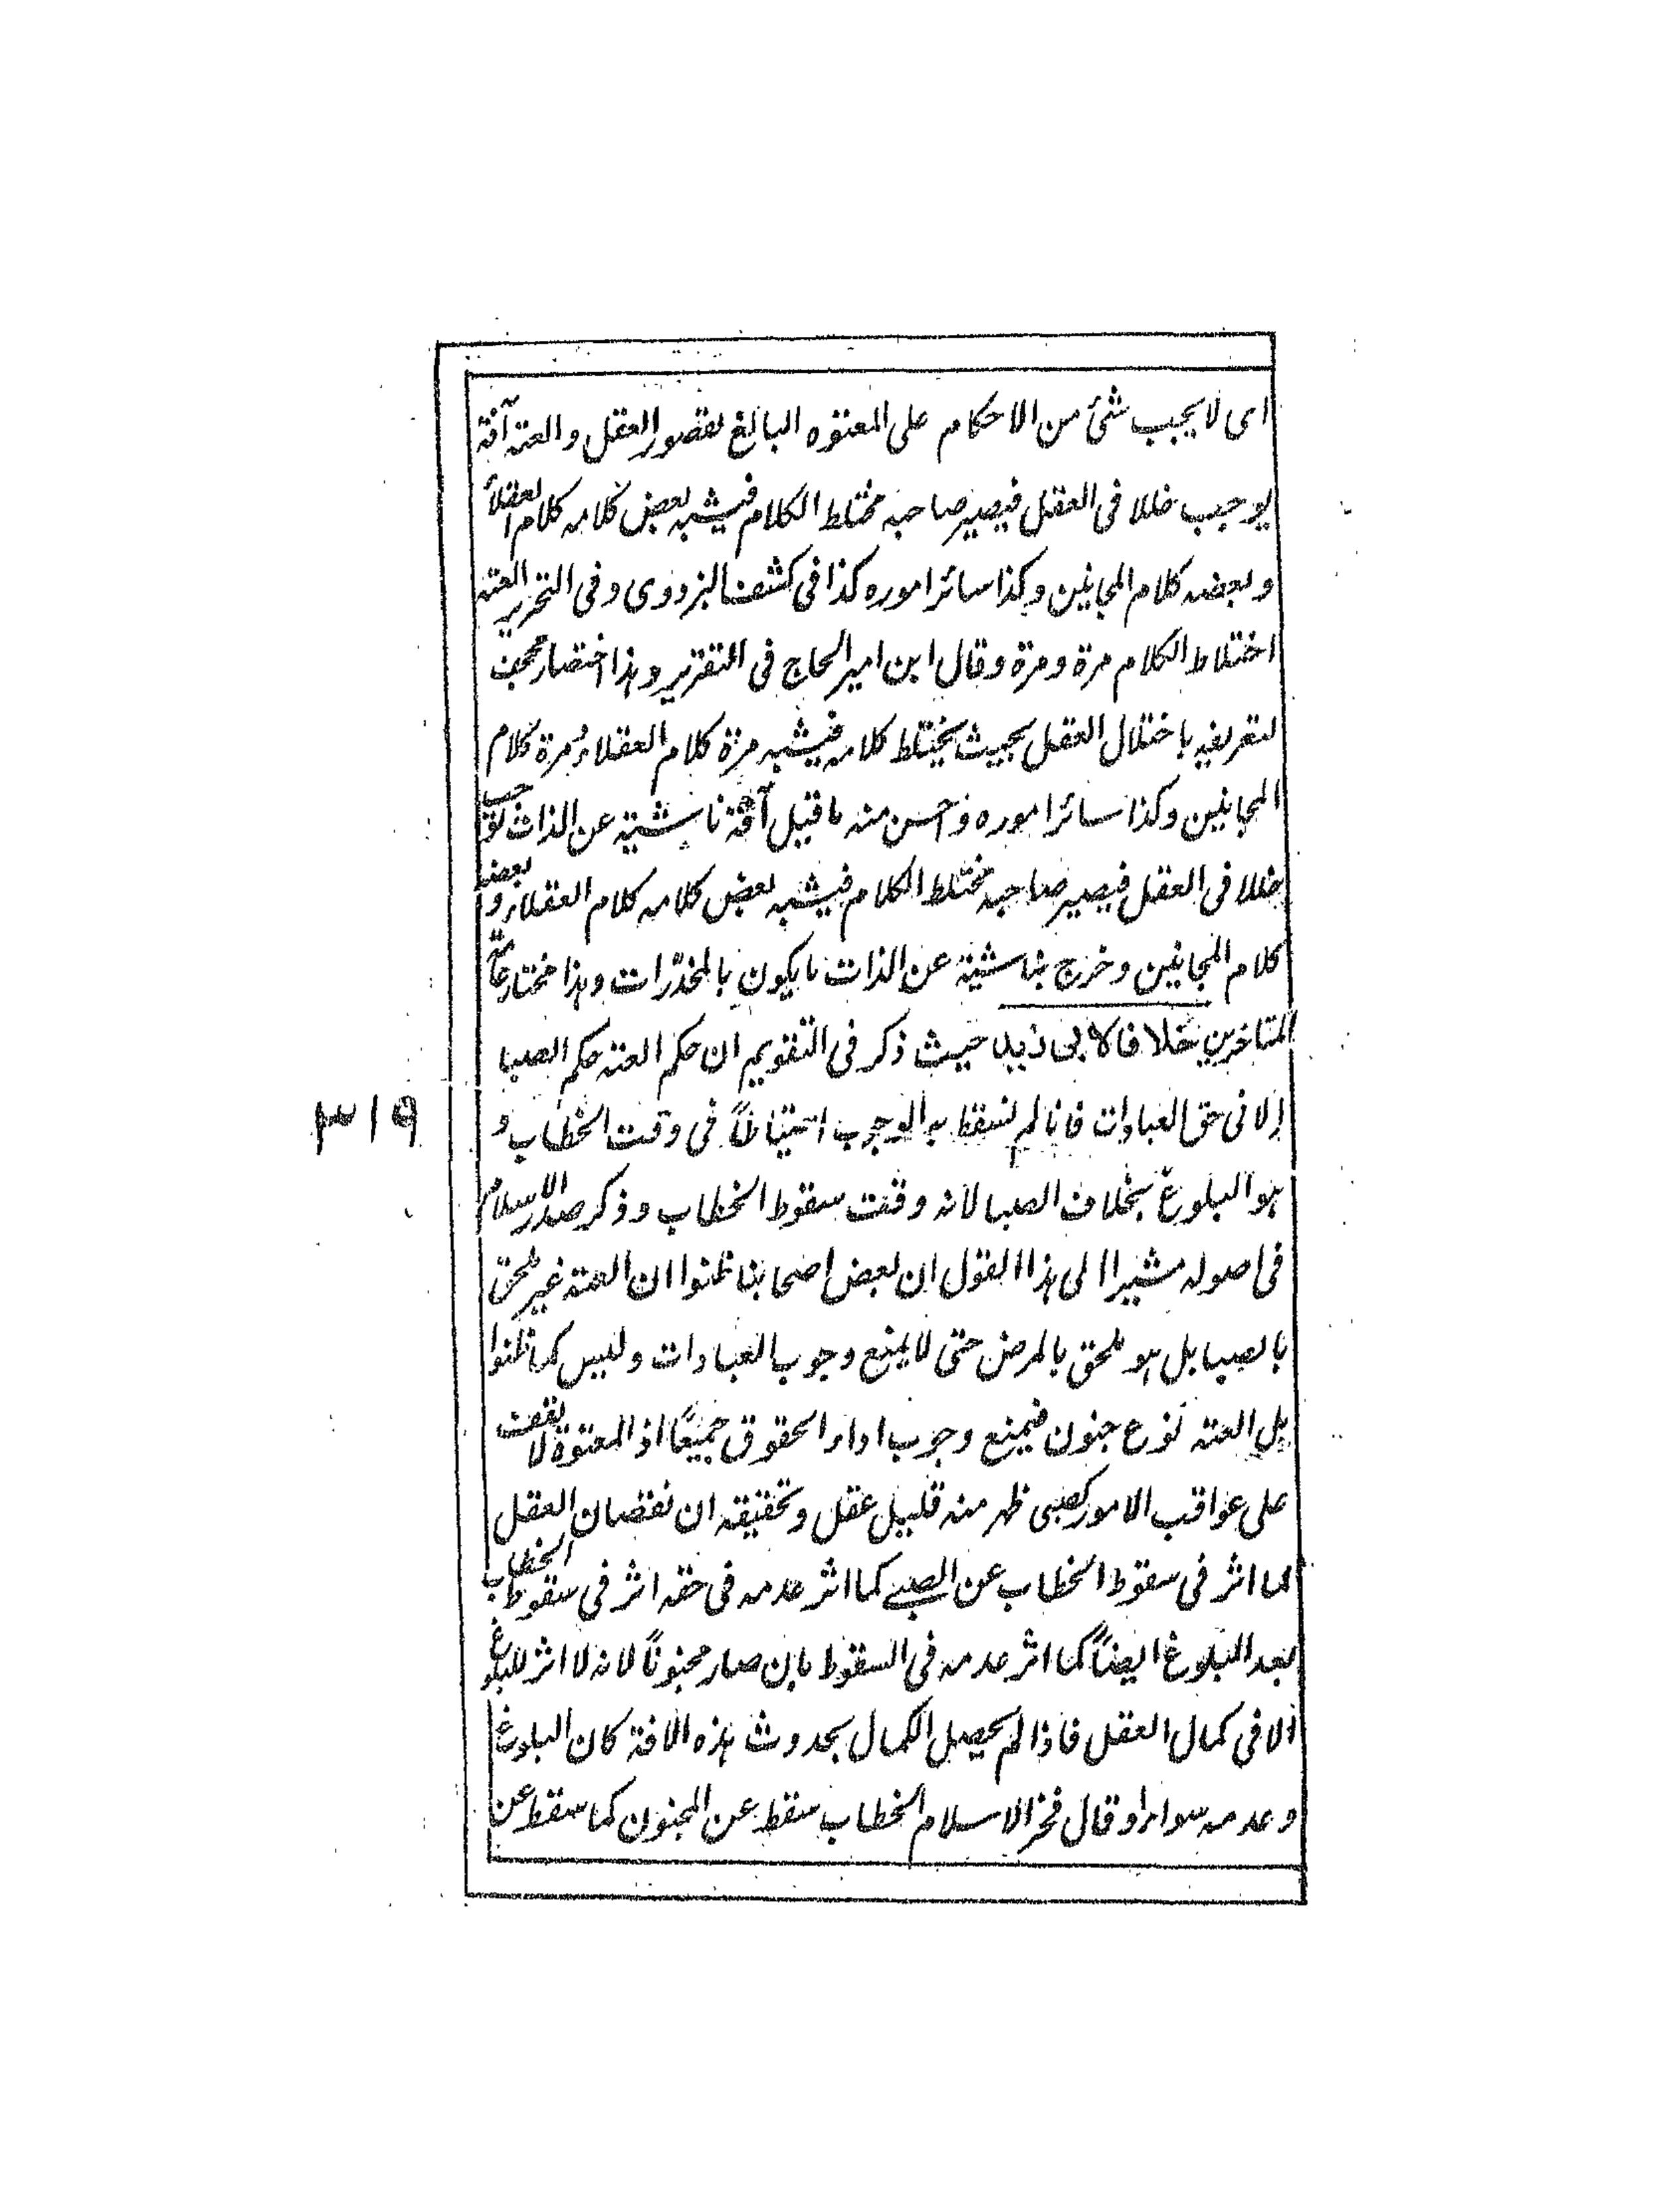 اى لا يجب شئ من الاحكام على المعتوه البالغ لقصور العقل والعته آفة
يوجب خللا فى العقل فيصير صاحبه مختلط الكلام فيشبه بعض كلامه كلام العقلاء
وبعضه كلام المجانين وكذا سائر اموره كذا فى كشف البزدوى وفى التحرير العته
اختلاط الكلام مرة ومرة وقال ابن امير الحاج فى التقرير وهذا اختصار مجحف
لتعريفه باختلال العقل بحيث يختلط كلامه فيشبه مرة كلام العقلاء ومرة كلام
المجانين وكذا سائر اموره واحسن منه ما قيل آفة ناشئية عن الذات توجب
خللا فى العقل فيصير صاحبه مختلط الكلام فيشبه بعض كلامه كلام العقلاء وبعضه
كلام المجانين وخرج بناشئية عن الذات ما يكون بالمخدّرات وهذا مختار عامة
المتاخرين خلافا لابى زيد حيث ذكر فى التقويم ان حكم العته حكم الصبا
الا فى حق العبادات فانا لم نسقط به الوجوب احتياطاً فى وقت الخطاب و
هو البلوغ بخلاف الصبا لانه وقت سقوط الخطاب وذكر صدر الاسلام
فى اصوله مشيرا الى هذا القول ان بعض اصحابنا ظنوا ان العته غير ملحق
بالصبا بل هو ملحق بالمرض حتى لا يمنع وجوب العبادات وليس كما ظنوا
بل العته نوع جنون فيمنع وجوب اداء الحقوق جميعًا اذ المعتوه لا يقف
على عواقب الامور كصبى ظهر منه قليل عقل وتحقيقه ان نقصان العقل
لما اثر فى سقوط الخطاب عن الصبى كما اثر عدمه فى حقه اثر فى سقوط الخطاب
بعد البلوغ ايضاً كما اثر عدمه فى السقوط بان صار مجنوناً لانه لا اثر للبلوغ
الا فى كمال العقل فاذا لم يحصل الكمال بحدوث هذه الافة كان البلوغ
وعدمه سواء وقال فخر الاسلام الخطاب سقط عن المجنون كما سقط عن
٣١٩